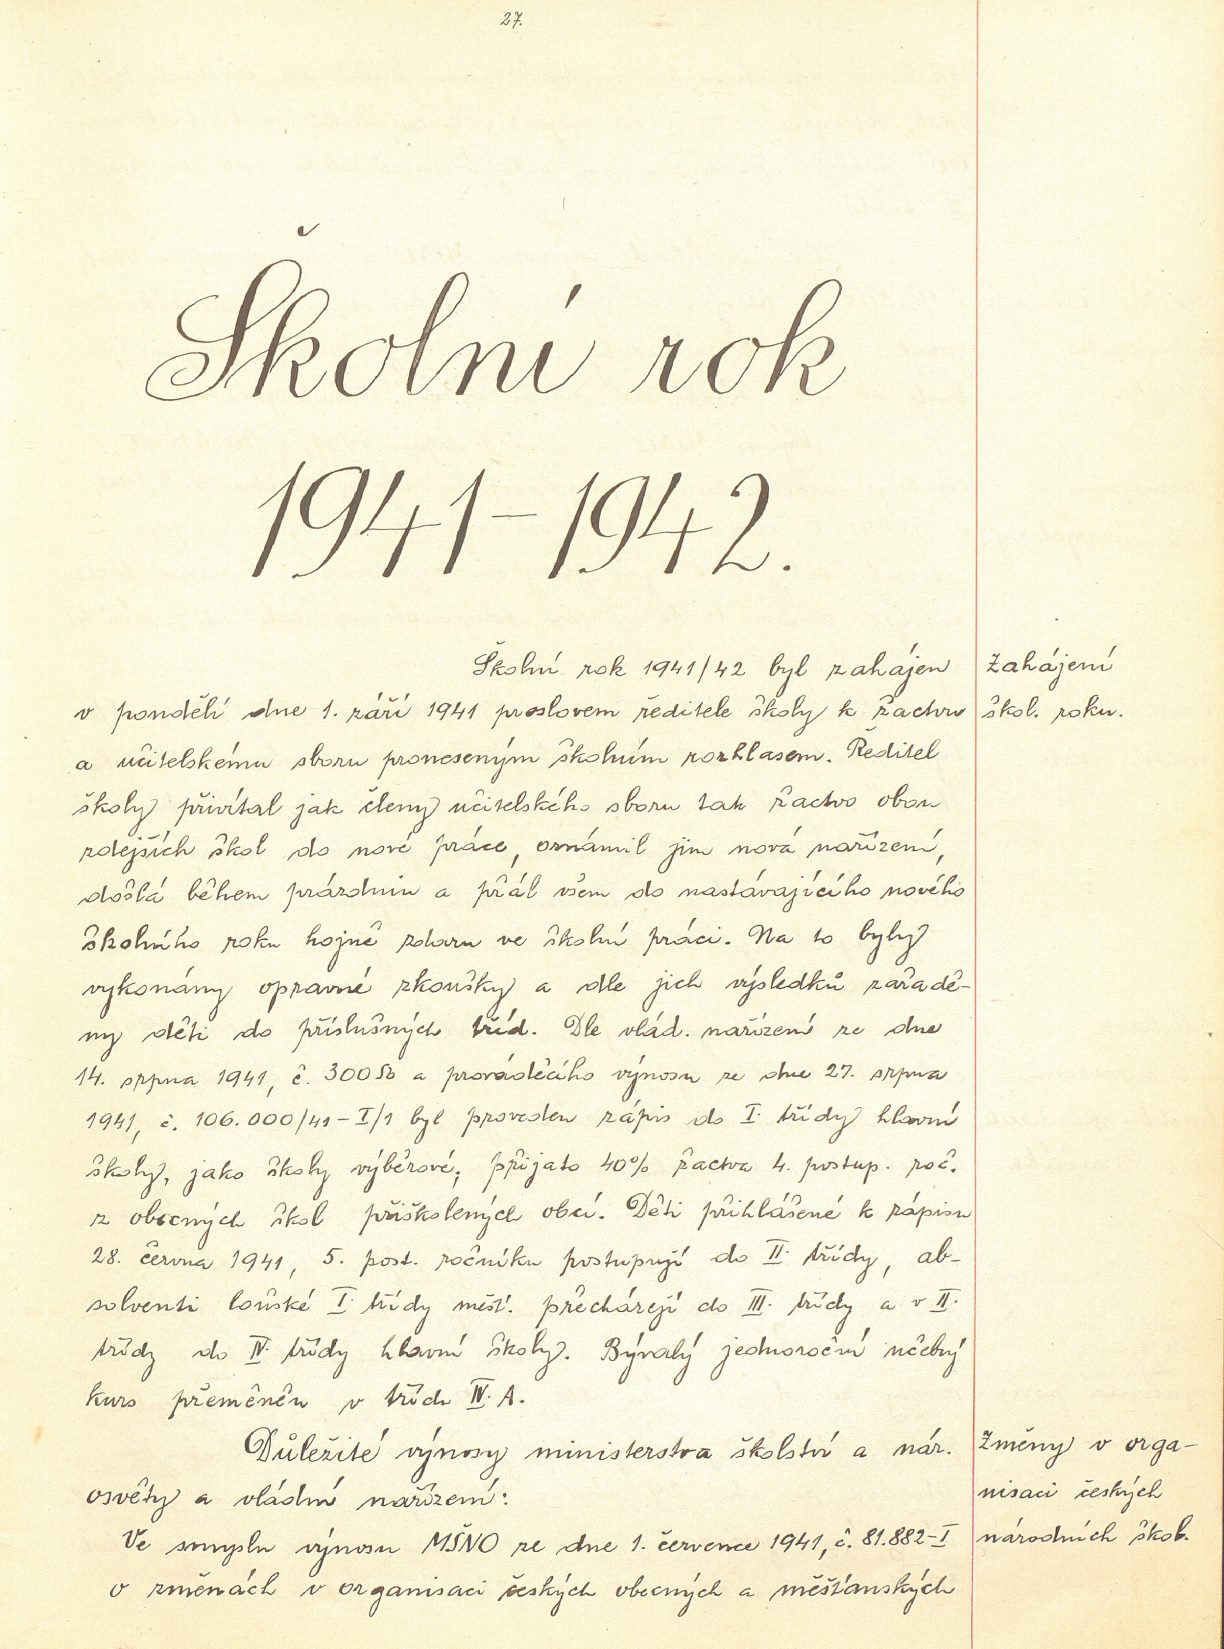 27.
Školní rok
1941-1942.
Školní rok 1941/42 byl zahájen
Zahájení
v pondělí dne 1. září 1941 proslovem ředitele školy k žactvu
škol. roku.
a učitelskému sboru proneseným školním rozhlasem. Ředitel
školy přivítal jak členy učitelského sboru tak žactvo obou
zdejších škol do nové práce, oznámil jim nová nařízení,
došlá během prázdnin a přál všem do nastávajícího nového
školního roku hojně zdaru ve školní práci. Na to byly
vykonány opravné zkoušky a dle jich výsledků zařadě-
ny děti do příslušných tříd. Dle vlád. nařízení ze dne
14. srpna 1941, č. 300 Sb a prováděcího výnosu ze dne 27. srpna
1941, č. 106.000/41-I/1 byl proveden zápis do I. třídy hlavní
školy, jako školy výběrové; přijato 40% žactva 4. postup. roč.
z obecných škol přiškolených obcí. Děti přihlášené k zápisu
28. června 1941, 5. post. ročníku postupují do II. třídy, ab-
solventi loňské I. třídy měšť. přecházejí do III. třídy a v II.
třídy do IV. třídy hlavní školy. Bývalý jednoroční učebný
kurs přeměněn v třídu IV. A.
Důležité výnosy ministerstva školství a nár.
Změny v orga-
osvěty a vládní nařízení:
nisaci českých
Ve smyslu výnosu MŠNO ze dne 1. července 1941, č. 81.882-I
národních škol.
o změnách v organisaci českých obecných a měšťanských